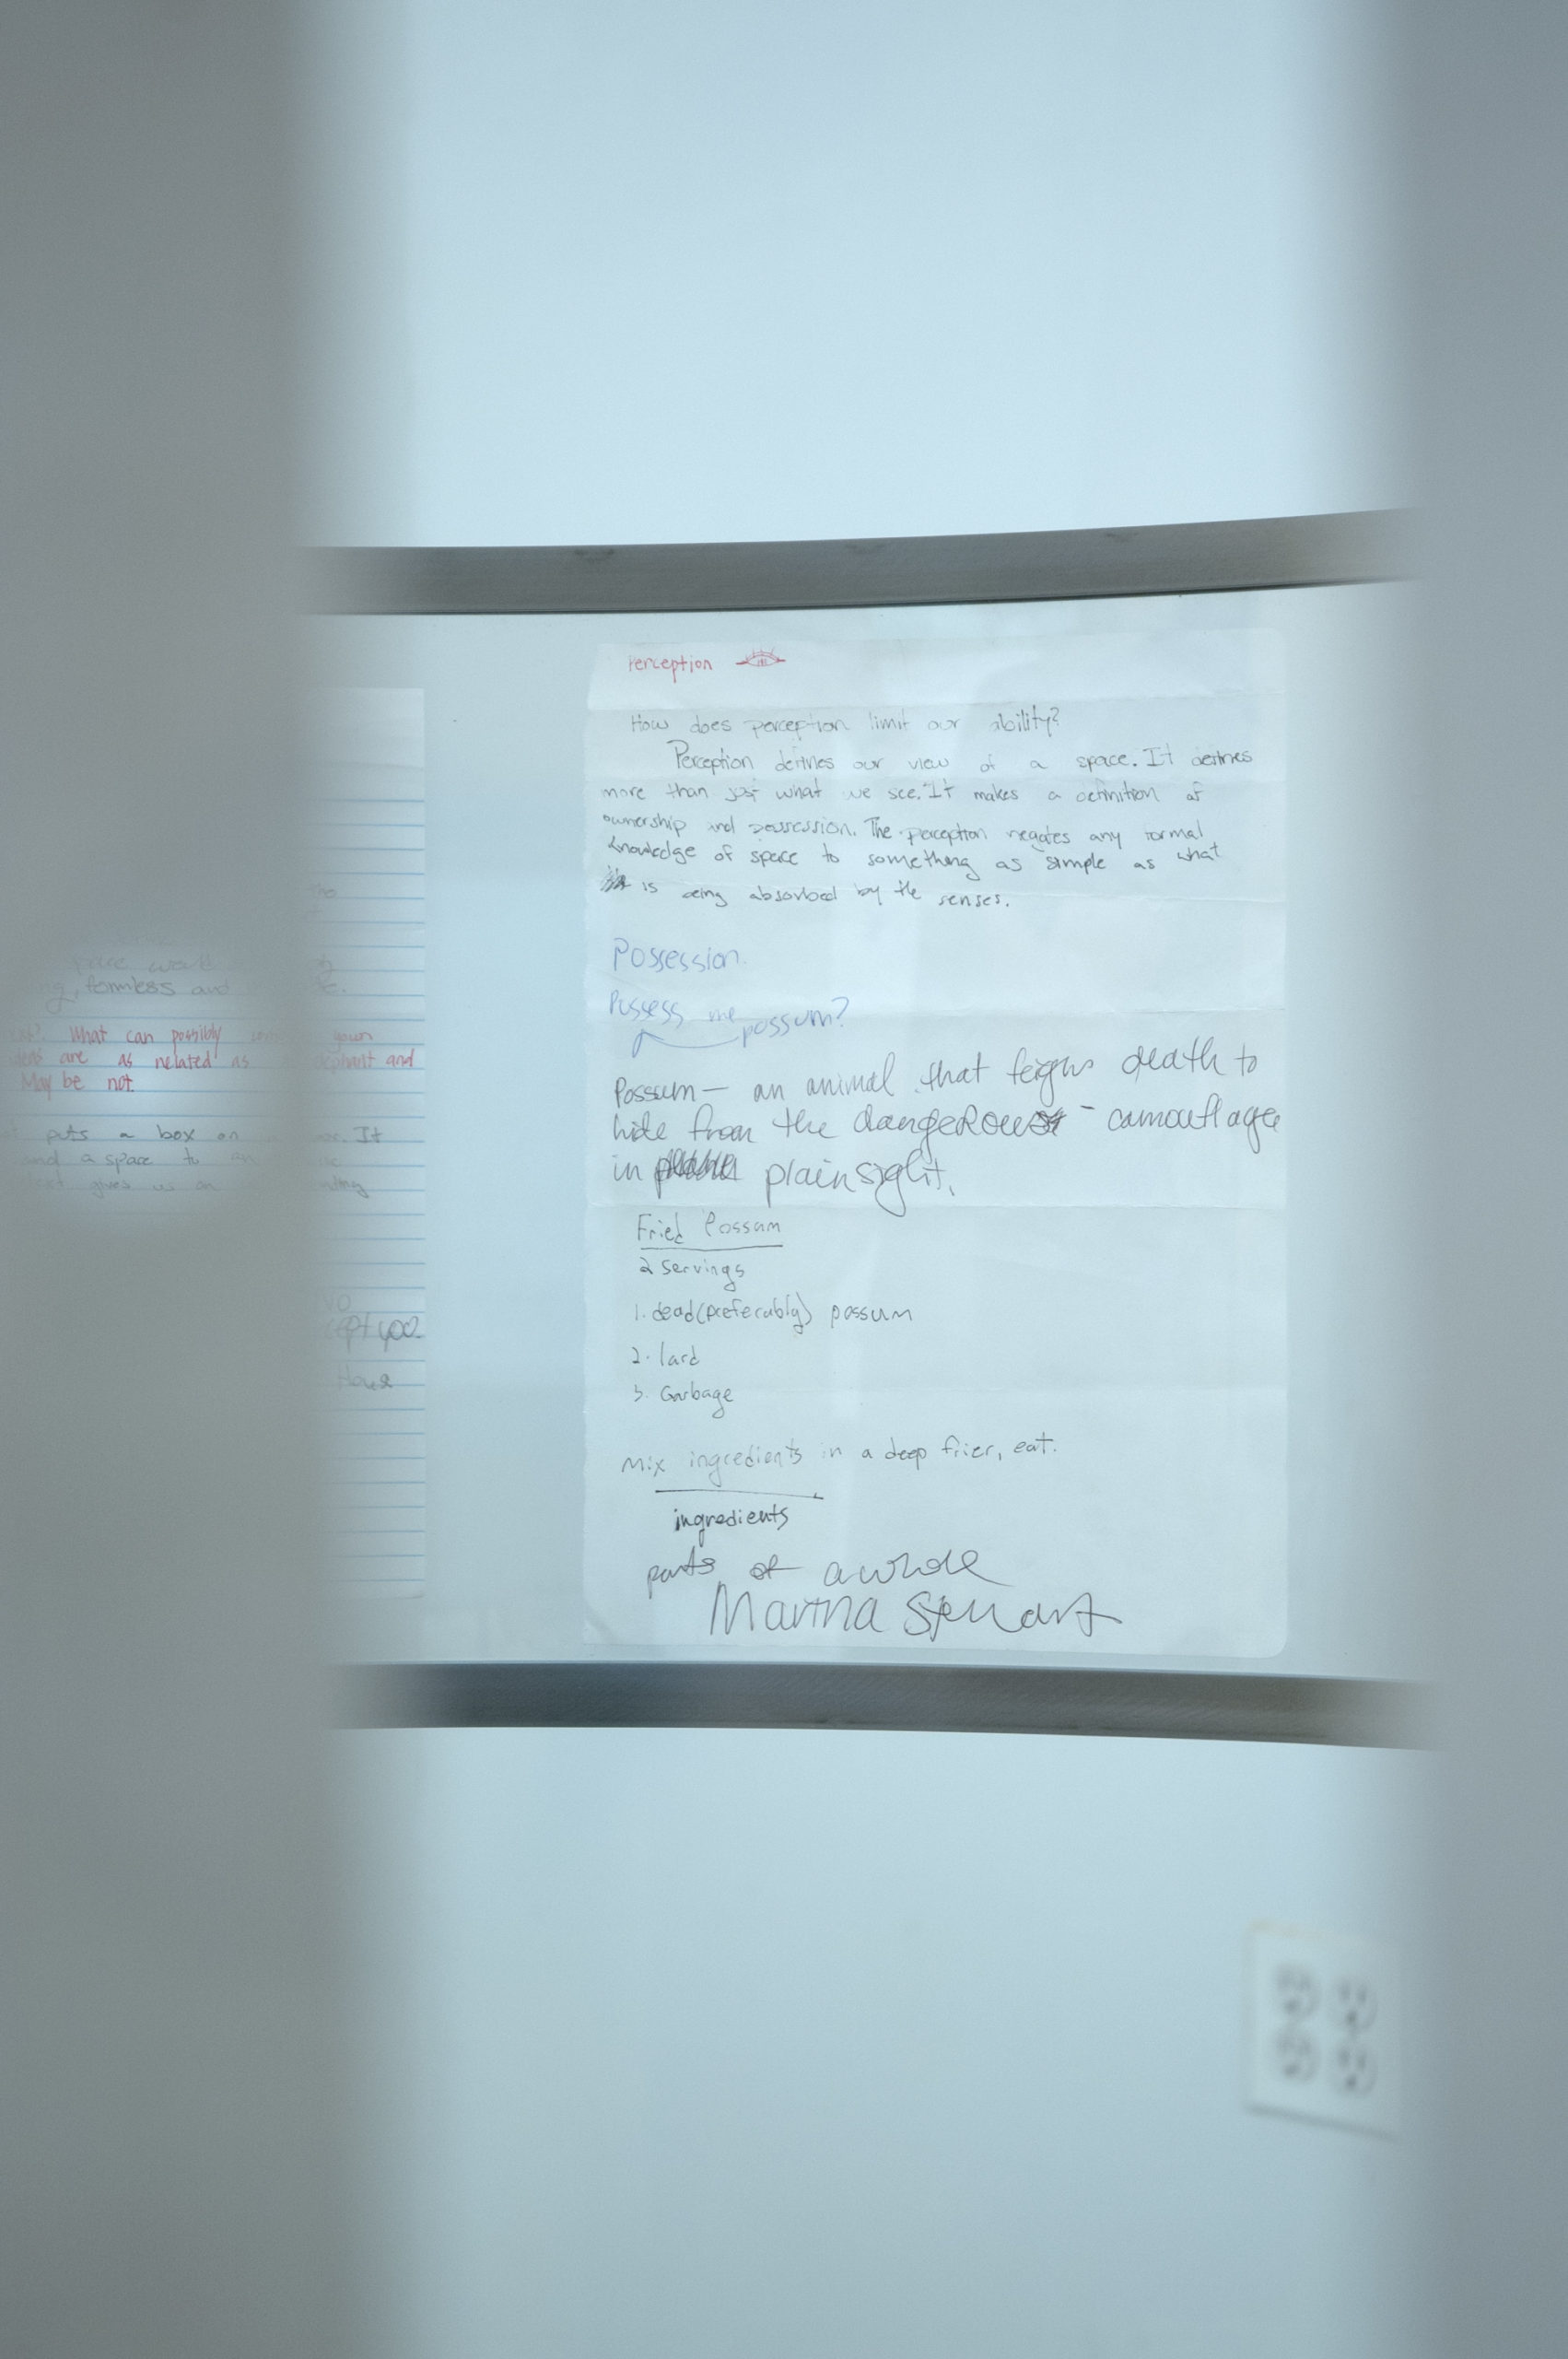 Perception
How does perception limit our ability?
Perception defines our view of a space. It defines
more than just what we see. It makes a definition of
ownership and possession. The perception negates any formal
knowledge of space to something as simple as what
is being absorbed by the senses.
Possession.
Possess me possum?
Possum — an animal that feigns death to
hide from the dangerous - camouflage
in plain sight.
Fried Possum
2 servings
1. dead (preferably) possum
2. lard
3. Garbage
Mix ingredients in a deep frier, eat.
ingredients
parts of a whole
Martha Stewart
formless and
What can possibly
are as related as
and
May be not.
puts a box on
It
and a space to
gives us an